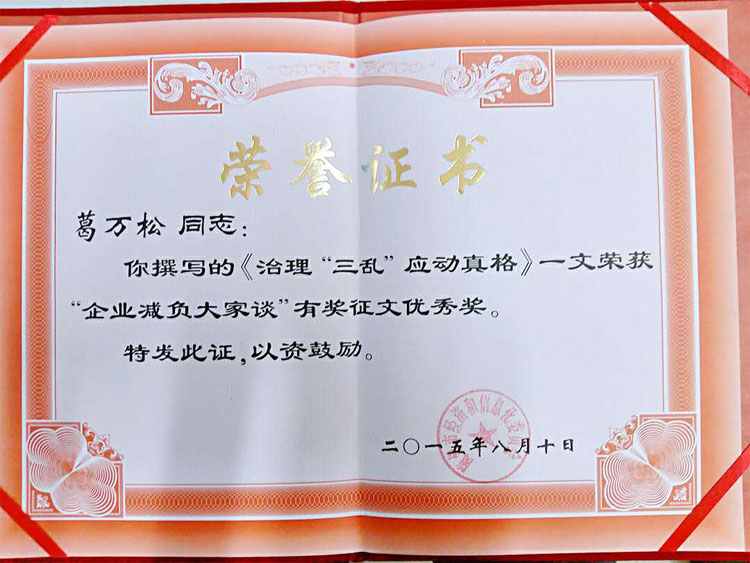 荣誉证书
葛万松 同志：
你撰写的《治理“三乱”应动真格》一文荣获
“企业减负大家谈”有奖征文优秀奖。
特发此证，以资鼓励。
经济和信息化委员会
二〇一五年八月十日